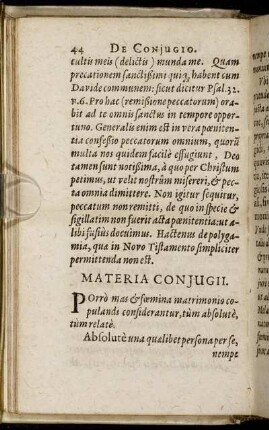 44 DE CONJUGIO.
cultis meis (delictis) munda me. Quam
precationem sanctissimi quiq₃, habent cum
Davide communem: sicut dicitur Psal. 32.
v. 6. Pro hac (remißione peccatorum) ora-
bit ad te omnis sanctus in tempore oppor-
tuno. Generalis enim est in vera pœniten-
tia confeßio peccatorum omnium, quorũ
multa nos quidem facilè effugiunt, Deo
tamen sunt notißima, à quo per Christum
petimus, ut velit nostrûm misereri, & pec-
ta omnia dimittere. Non igitur sequitur,
peccatum non remitti, de quo in specie &
sigillatim non fuerit acta pœnitentia: ut a-
libi fusiùs docuimus. Hactenus de polyga-
mia, quæ in Novo Testamento simpliciter
permittenda non est.
MATERIA CONJUGII.
Porrò mas & fœmina matrimonio co-
pulandi considerantur, tùm absolutè,
tùm relatè.
Absolutè una quælibet persona per se,
nempe